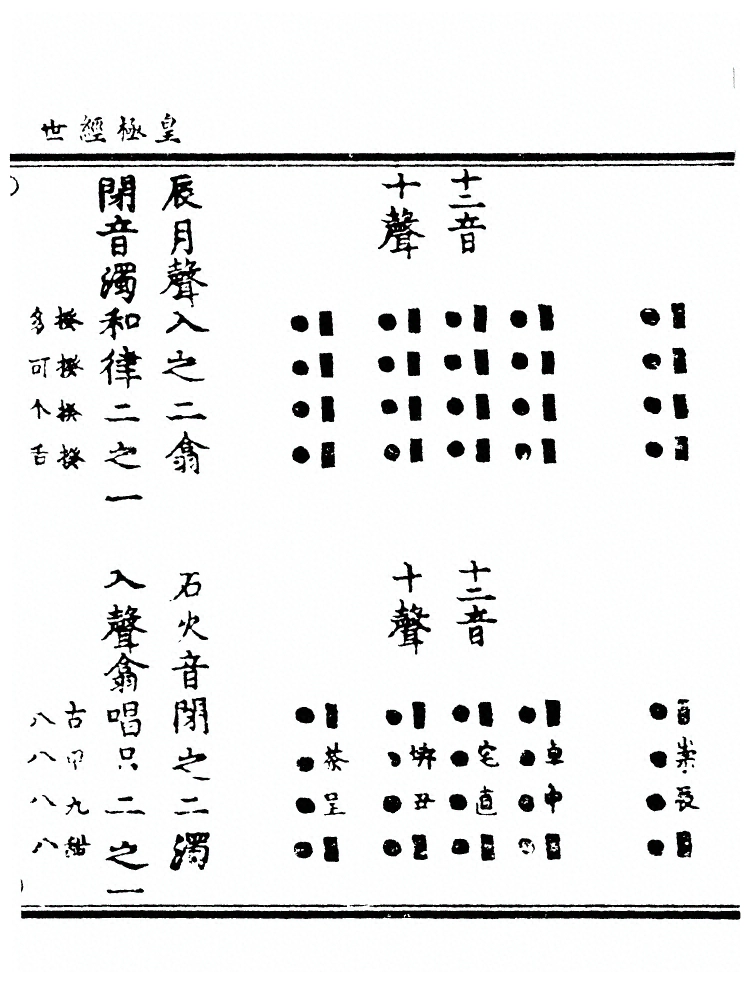 皇極經世
十二音
十聲
辰月聲入之二翕
閉音濁和律二之一
揆揆揆揆
多可个舌
崇長
卓中
宅直
坼丑
茶呈
十二音
十聲
石火音閉之二濁
入聲翕唱只二之一
古甲九
八八八八